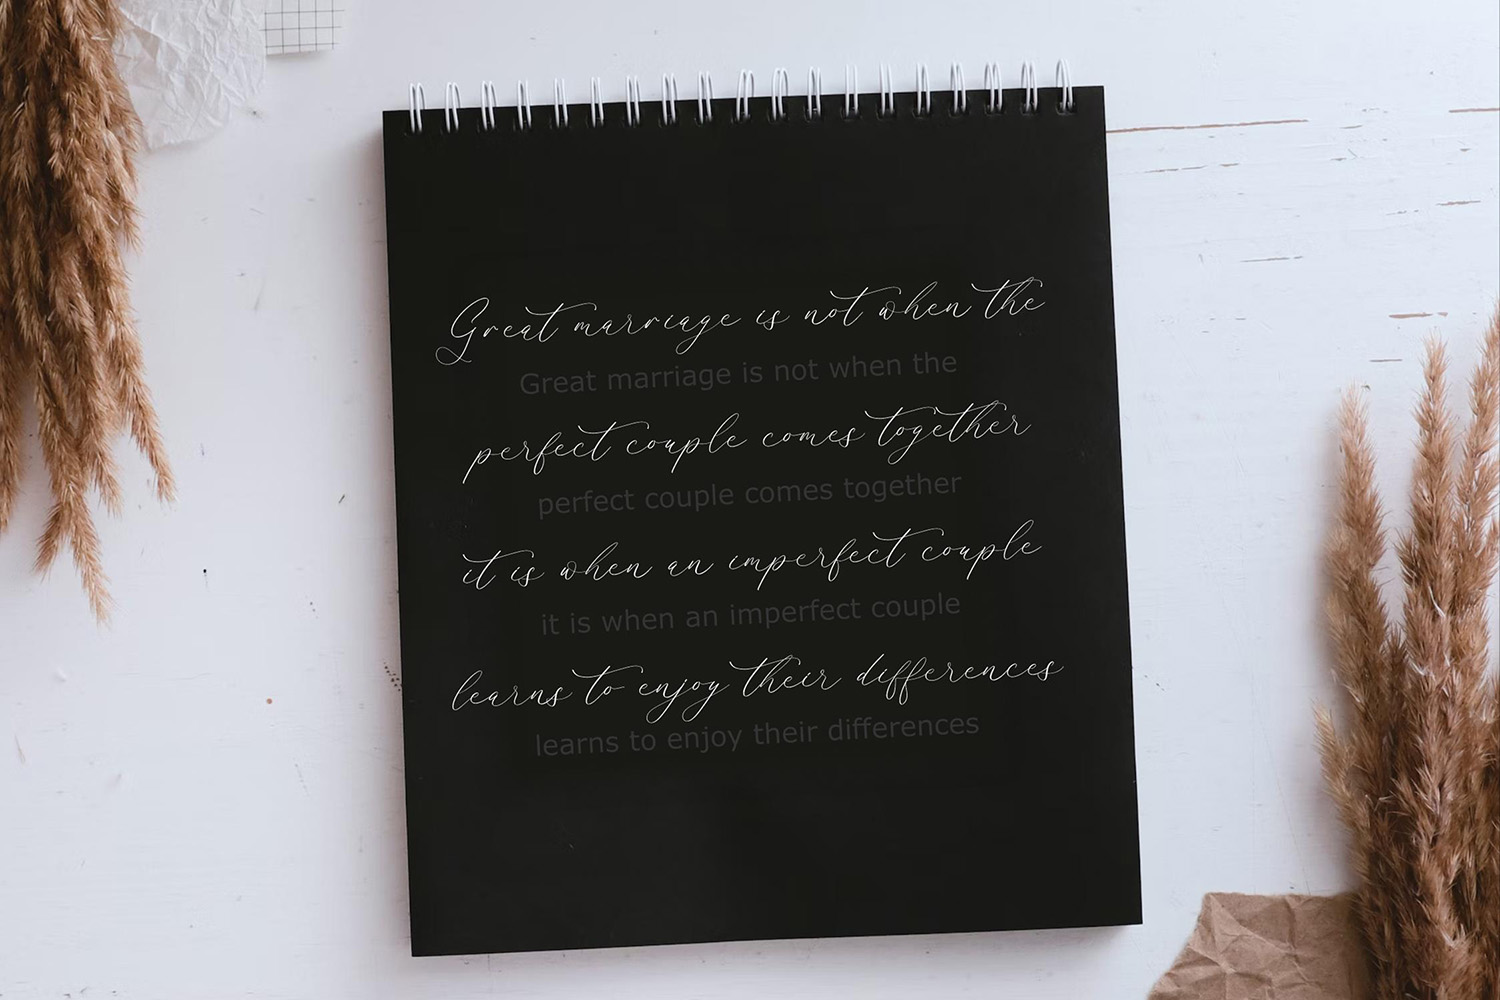 Great marriage is not when the
Great marriage is not when the
perfect couple comes together
perfect couple comes together
it is when an imperfect couple
it is when an imperfect couple
learns to enjoy their differences
learns to enjoy their differences